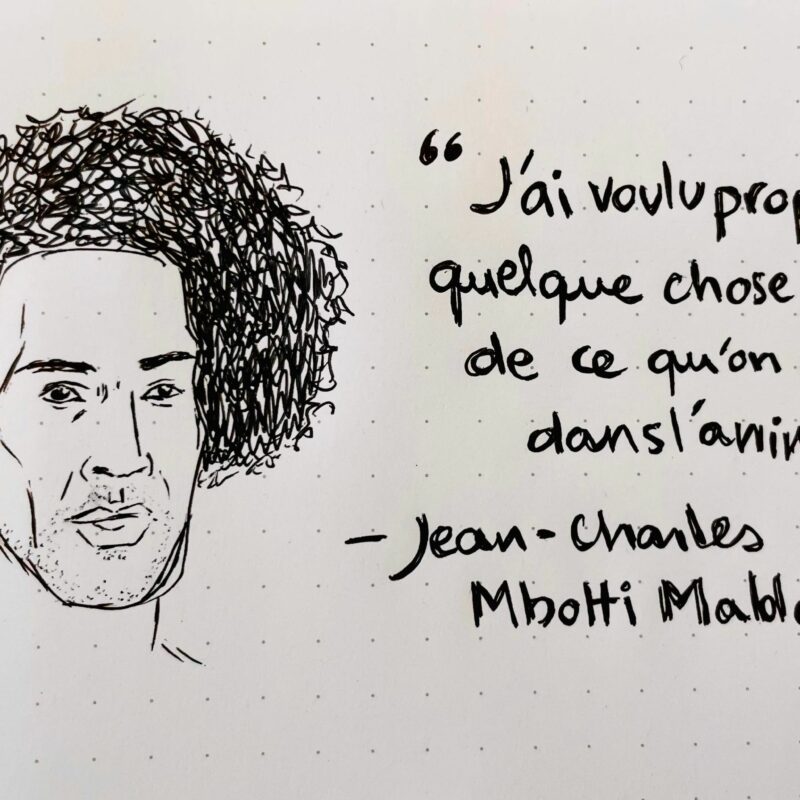 “ J'ai voulu prop
quelque chose
de ce qu'on
dans l'anim
— Jean-Charles
Mbotti Malo